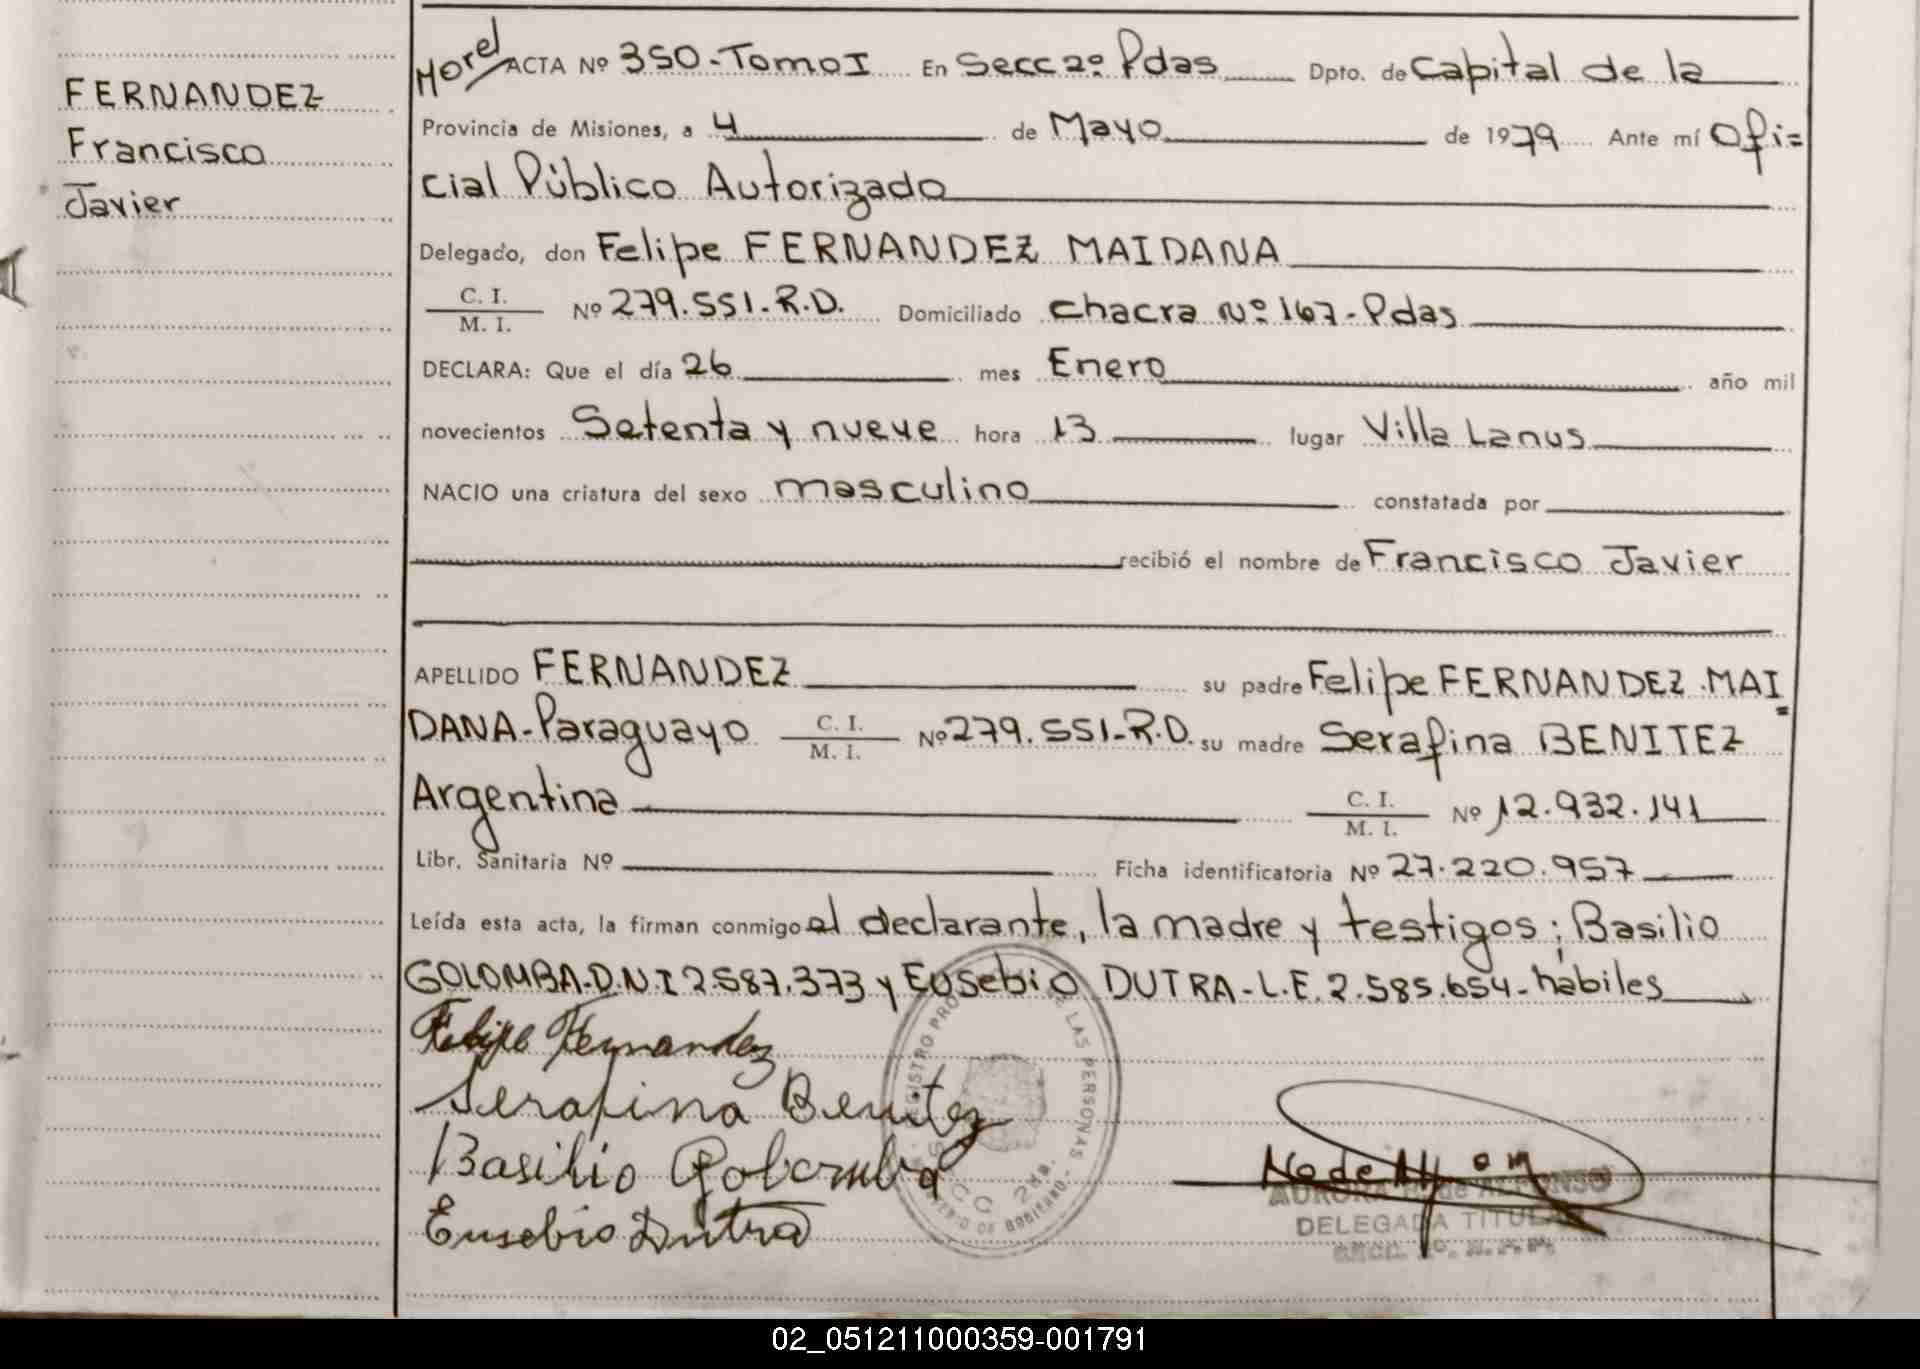 FERNANDEZ
Francisco
Javier
Morel
ACTA Nº 350-Tomo I En Secc 2º Pdas Dpto. de Capital de la
Provincia de Misiones, a 4 de Mayo de 1979 Ante mí Ofi=
cial Público Autorizado
Delegado, don Felipe FERNANDEZ MAIDANA
C. I.
M. I. Nº 279.551-R.D. Domiciliado Chacra Nº 167-Pdas
DECLARA: Que el día 26 mes Enero año mil
novecientos Setenta y nueve hora 13 lugar Villa Lanus
NACIO una criatura del sexo masculino constatada por
recibió el nombre de Francisco Javier
APELLIDO FERNANDEZ su padre Felipe FERNANDEZ MAI=
DANA-Paraguayo C. I. M. I. Nº 279.551-R.D. su madre Serafina BENITEZ
Argentina C. I. M. I. Nº 12.932.141
Libr. Sanitaria Nº Ficha identificatoria Nº 27.220.957
Leída esta acta, la firman conmigo el declarante, la madre y testigos; Basilio
GOLOMBA-D.N.I 2.587.373 y Eusebio DUTRA-L.E. 2.585.654-habiles
Felipe Fernandez
Serafina Benitez
Basilio Golomba
Eusebio Dutra
REGISTRO PRO DE LAS PERSONAS
SECC 2da.
AURORA de ALFONSO
DELEGADA TITULAR
02_051211000359-001791